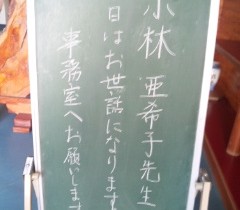 小林 亜希子先生
日はお世話になります。
事務室へお願いします